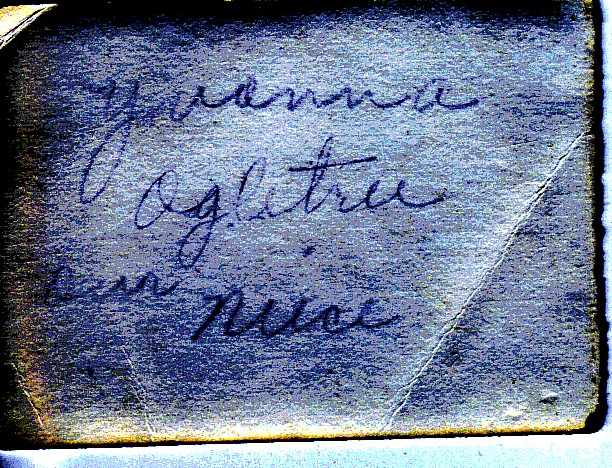 Yvonna
Ogletree
our niece